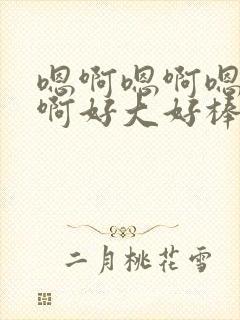 嗯啊嗯啊嗯
啊好大好棒
二月桃花雪